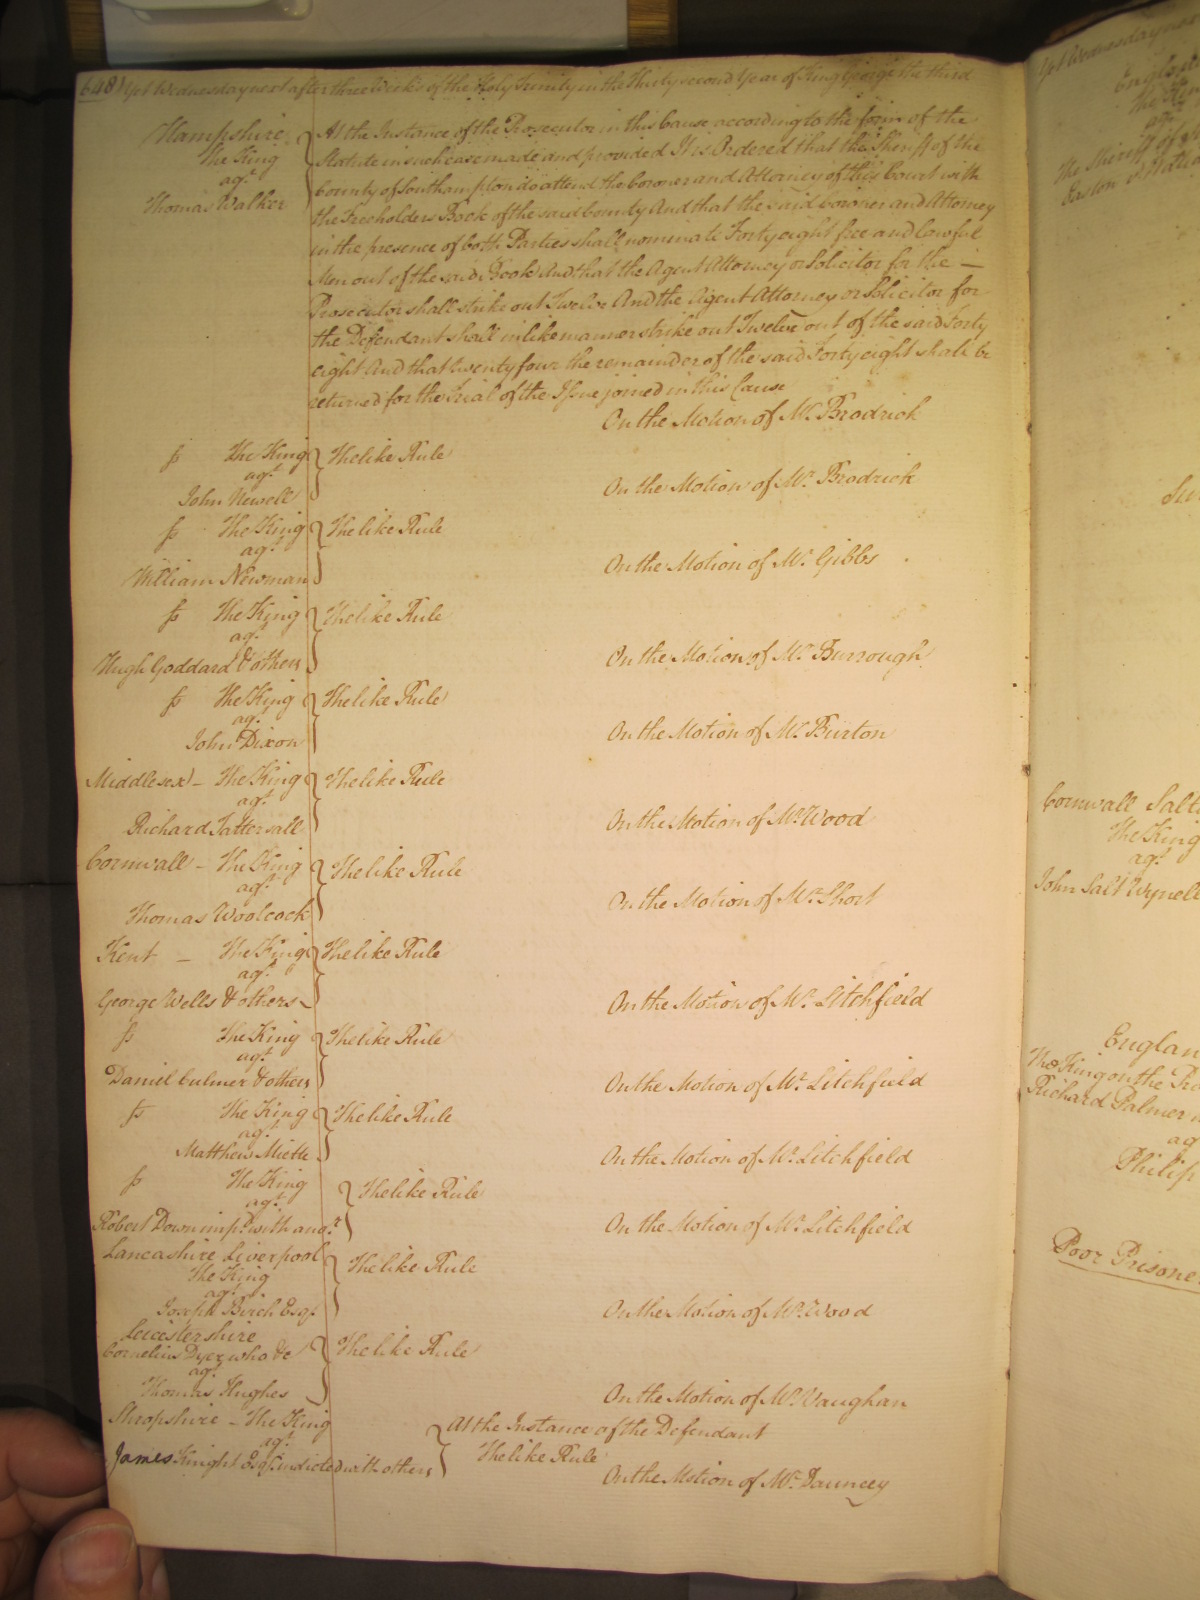 648) Yet Wednesday next after three Weeks of the Holy Trinity in the Thirty second Year of King George the third
Hampshire
The King
agt.
Thomas Walker
At the Instance of the Prosecutor in this Cause according to the form of the
Statute in such case made and provided It is Ordered that the Sheriff of the
County of Southampton do attend the Coroner and Attorney of this Court with
the Freeholders Book of the said County And that the said Coroner and Attorney
in the presence of both Parties shall nominate Forty eight free and lawful
Men out of the said Book And that the Agent Attorney or Solicitor for the —
Prosecutor shall strike out Twelve And the Agent Attorney or Solicitor for
the Defendant shall in like manner strike out Twelve out of the said Forty
eight And that twenty four the remainder of the said Forty eight shall be
returned for the Trial of the Issue joined in this Cause
On the Motion of Mr. Brodrick
ss The King
agt.
John Newell
The like Rule
On the Motion of Mr. Brodrick
ss The King
agt.
William Newman
The like Rule
On the Motion of Mr. Gibbs
ss The King
agt.
Hugh Goddard & others
The like Rule
On the Motion of Mr. Burrough
ss The King
agt.
John Dixon
The like Rule
On the Motion of Mr. Burton
Middlesex – The King
agt.
Richard Tattersall
The like Rule
On the Motion of Mr. Wood
Cornwall – The King
agt.
Thomas Woolcock
The like Rule
On the Motion of Mr. Short
Kent – The King
agt.
George Wells & others
The like Rule
On the Motion of Mr. Litchfield
ss The King
agt.
Daniel Culmer & others
The like Rule
On the Motion of Mr. Litchfield
ss The King
agt.
Matthew
The like Rule
On the Motion of Mr. Litchfield
ss The King
agt.
Robert Down impd. with anor.
The like Rule
On the Motion of Mr. Litchfield
Lancashire Liverpool
The King
agt.
Joseph Birch Esqr.
The like Rule
On the Motion of Mr. Wood
Leicestershire
Cornelius Dyer who &c
agt.
Thomas Hughes
The like Rule
On the Motion of Mr. Vaughan
Shropshire – The King
agt.
James Knight Esqr. indicted with others
At the Instance of the Defendant
The like Rule
On the Motion of Mr. Dauncey
Yet Wednesday next
The Sheriff of
Cornwall Salt
The King
agt.
John Salt Wynell
Englan
The King on the Pro
Richard Palmer
ag
Philip
Poor Prisone